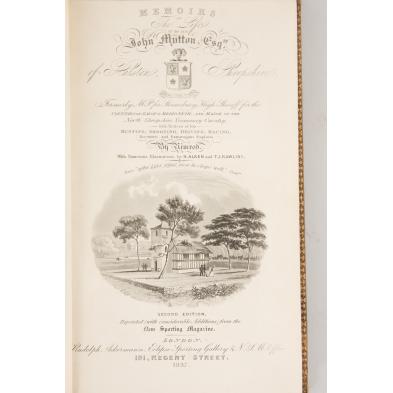 MEMOIRS
of the late
John Mytton, Esqr.
of Halston, Shropshire,
Formerly M.P. for Shrewsbury, High Sheriff for the
COUNTIES OF SALOP & MERIONETH, AND MAJOR OF THE
North Shropshire Yeomanry Cavalry;
with Notices of his
HUNTING, SHOOTING, DRIVING, RACING,
Eccentric and Extravagant Exploits.
By Nimrod.
With Numerous Illustrations by H. ALKEN and T.J. RAWLINS.
SECOND EDITION,
Reprinted (with considerable Additions) from the
New Sporting Magazine.
LONDON:
Rudolph Ackermann, Eclipse Sporting Gallery &
191, REGENT STREET.
1837.